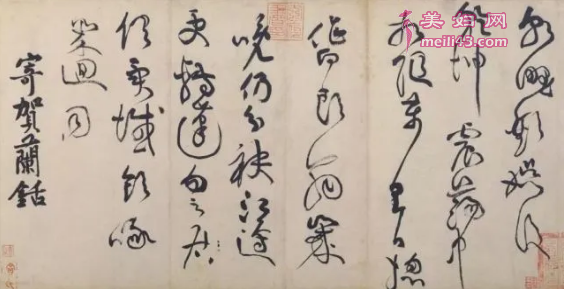 朝野歡娛後
乾坤震蕩中
相隨萬里日總
作白頭翁歲
晚仍分袂江邊
更轉蓬勿云
俱異域飲啄
幾迴同
寄賀蘭銛
美妇网
meili43.com